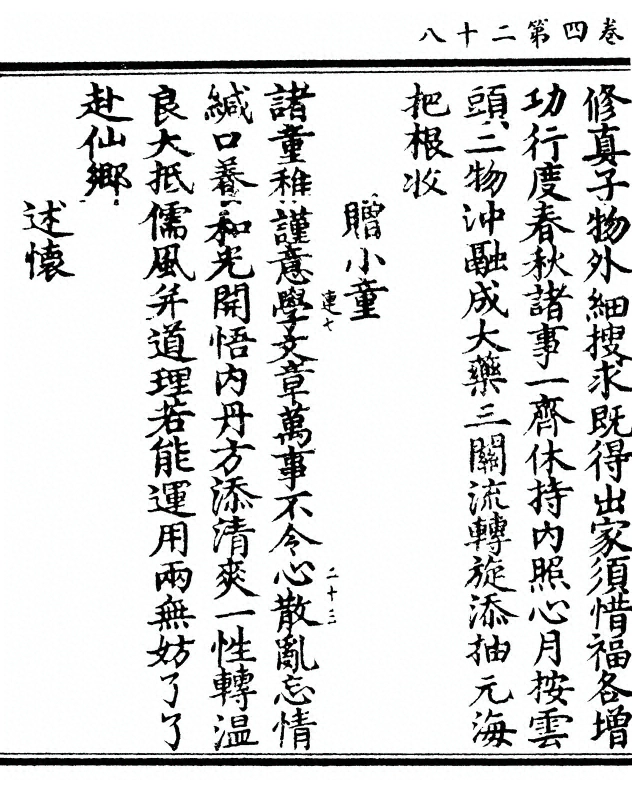 卷四第二十八
修真子物外細搜求既得出家須惜福各增
功行度春秋諸事一齊休持內照心月按雲
頭二物沖融成大藥三關流轉旋添抽元海
把根收
贈小童
連七
二十三
諸童稚謹意學文章萬事不令心散亂忘情
緘口養和光開悟內丹方添清爽一性轉溫
良大抵儒風并道理若能運用兩無妨了了
赴仙鄉
述懷